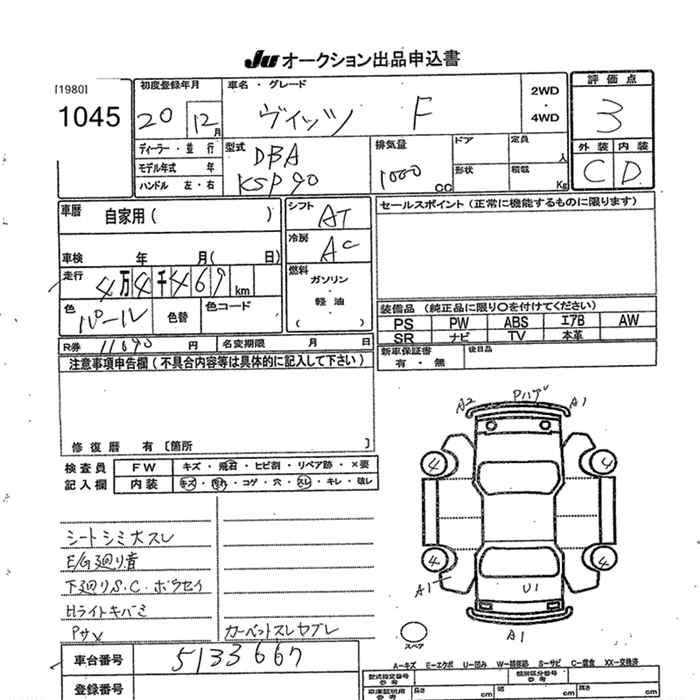 JU オークション出品申込書
[1980]
1045
初度登録年月
20 12月
車名・グレード
ヴィッツ F
2WD
・
4WD
評価点
3
外装 内装
C D
ディーラー・並行
モデル年式 年
ハンドル 左・右
型式
DBA
KSP90
排気量
1000 CC
ドア
定員 人
形状
積載 Kg
車歴 自家用( )
車検 年 月( 日)
走行 4万4千469km
色 パール
色替
色コード
シフト AT
冷房 AC
燃料
ガソリン
・
軽油
( )
セールスポイント(正常に機能するものに限ります)
装備品(純正品に限り○を付けてください)
PS PW ABS エアB AW
SR ナビ TV 本革
新車保証書
有・無
後日品
R券 11690円
名変期限 月 日
注意事項申告欄(不具合内容等は具体的に記入して下さい)
修復歴 有〔箇所 〕
検査員 FW キズ・飛石・ヒビ割・リペア跡・×要
記入欄 内装 キズ・汚れ・コゲ・穴・スレ・キレ・破レ
シートシミ大スレ
E/G廻り音
下廻りS.C.ボウセイ
Hライトキバミ
Pサビ
カーペットスレヤブレ
A2 Pハゲ A1
4 4
4 4
A1 U1
A1
スペア
車台番号 5133667
登録番号
A-キズ E-エクボ U-凹み W-補修跡 S-サビ C-腐食 XX-交換済
型式指定番号
参考
類別区分番号
参考
車庫証明用
参考
長さ cm
幅 cm
高さ cm